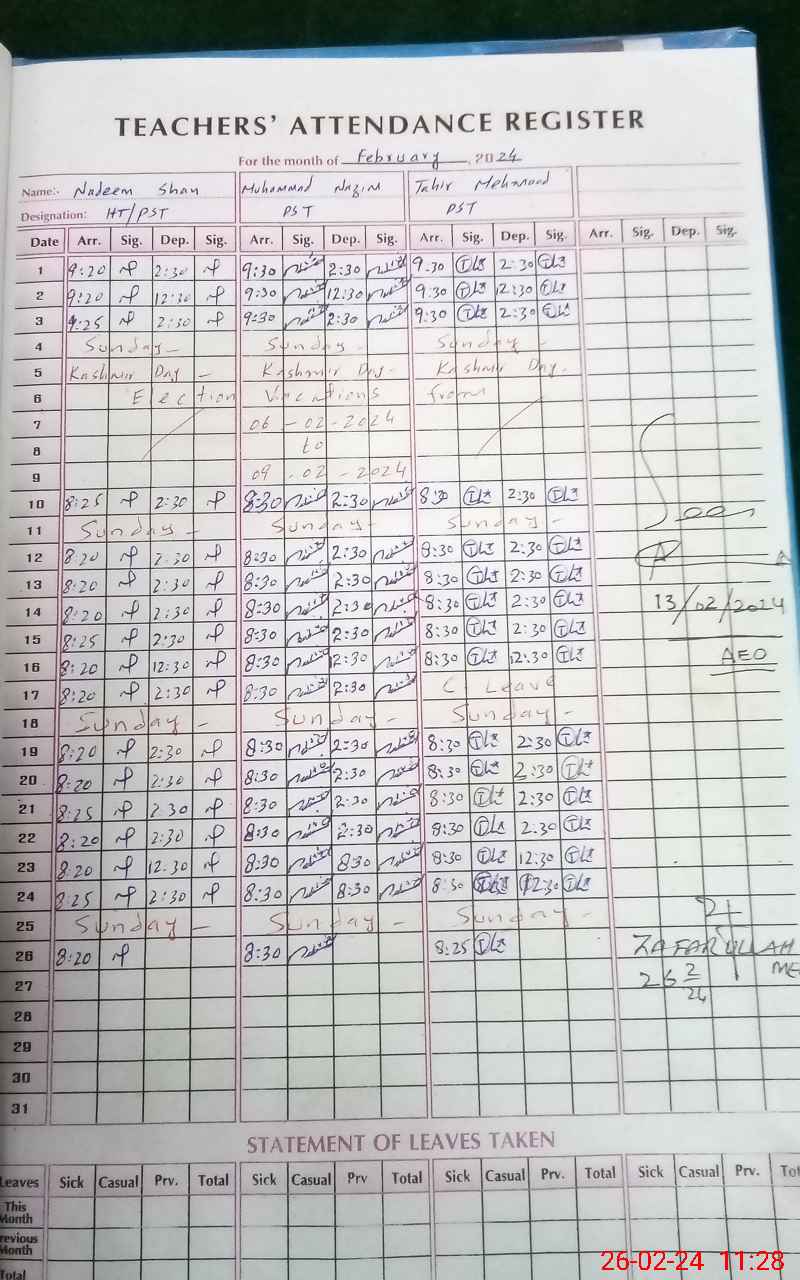 TEACHERS' ATTENDANCE REGISTER
For the month of February, 2024
Name:- Nadeem Shah Muhammad Nazim Tahir Mehmood
Designation: HT/PST PST PST
Date Arr. Sig. Dep. Sig. Arr. Sig. Dep. Sig. Arr. Sig. Dep. Sig. Arr. Sig. Dep. Sig.
1 9:20 2:30 9:30 2:30 9.30 2:30
2 9:20 12:30 9:30 12:30 9.30 12:30
3 9:25 2:30 9:30 2:30 9:30 2:30
4 Sunday - Sunday - Sunday -
5 Kashmir Day - Kashmir Day - Kashmir Day -
6 Election Vacations from
7 06-02-2024
8 to
9 09-02-2024
10 8:25 2:30 8:30 2:30 8:30 2:30
11 Sunday - Sunday - Sunday -
Seen
12 8:20 2:30 8:30 2:30 8:30 2:30
13 8:20 2:30 8:30 2:30 8:30 2:30
14 8:20 2:30 8:30 2:30 8:30 2:30 13/02/2024
15 8:25 2:30 8:30 2:30 8:30 2:30
16 8:20 12:30 8:30 12:30 8:30 12:30 AEO
17 8:20 2:30 8:30 2:30 C. Leave
18 Sunday - Sunday - Sunday -
19 8:20 2:30 8:30 2:30 8:30 2:30
20 8:20 2:30 8:30 2:30 8:30 2:30
21 8:25 2:30 8:30 2:30 8:30 2:30
22 8:20 2:30 8:30 2:30 8:30 2.30
23 8:20 12.30 8:30 8:30 8:30 12:30
24 8:25 2:30 8:30 8:30 8:30 2:30
25 Sunday - Sunday - Sunday -
26 8:20 8:30 8:25 ZAFARULLAH
27 26 2/24
28
29
30
31
STATEMENT OF LEAVES TAKEN
Leaves Sick Casual Prv. Total Sick Casual Prv Total Sick Casual Prv. Total Sick Casual Prv.
This Month
Previous Month
Total
26-02-24 11:28